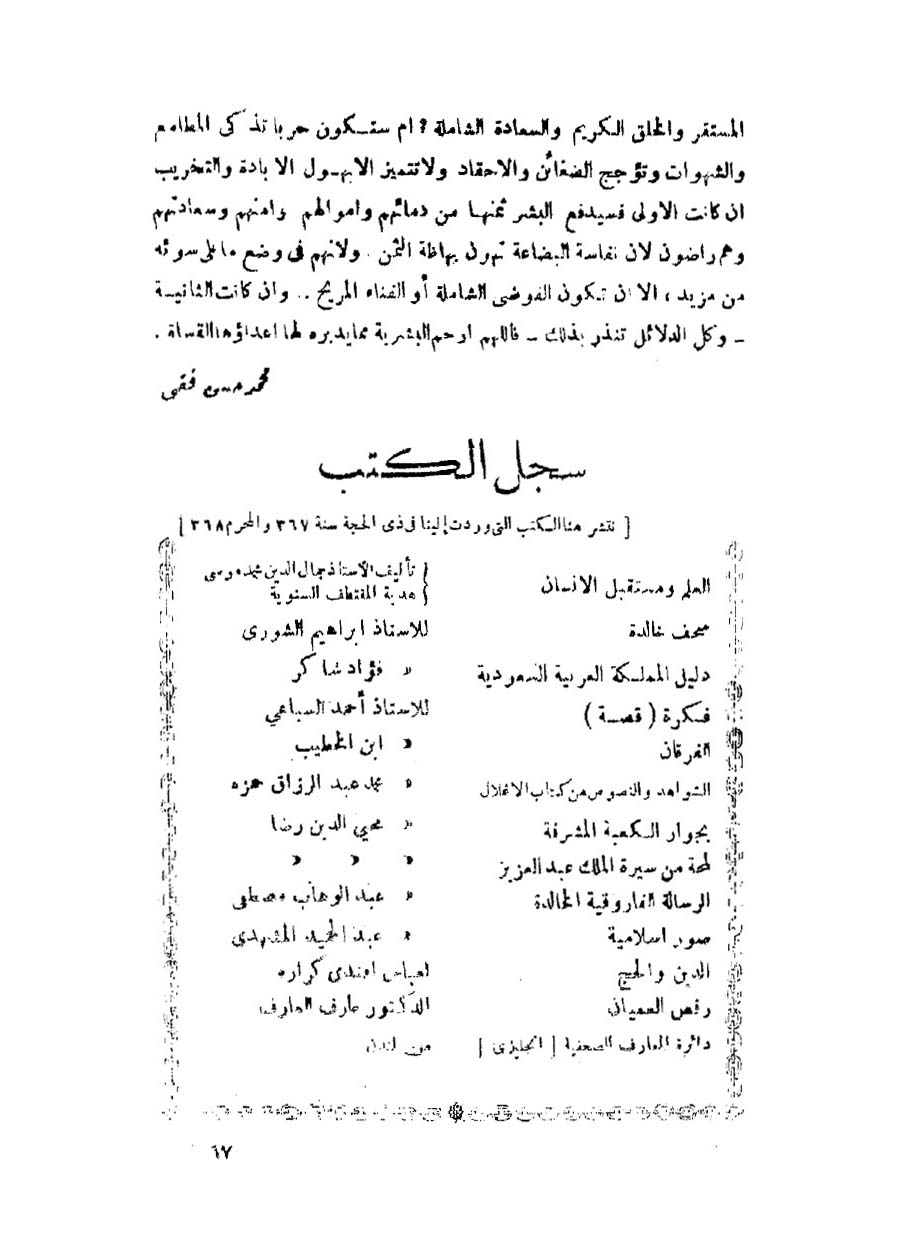 المستقر والخلق الكريم والسعادة الشاملة ? ام ستكون حربا تذكى المطامع
والشهوات وتؤجج الضغائن والاحقاد ولا تتميز الا بهول الابادة والتخريب
ان كانت الاولى فسيدفع البشر ثمنها من دمائهم واموالهم وامنهم وسعادتهم
وهم راضون لان نفاسة البضاعة تهون بهاظة الثمن . ولانهم فى وضع ما على سوئه
من مزيد ، الا ان تكون الفوضى الشاملة أو الفناء المريح .. وان كانت الثانية
ـ وكل الدلائل تنذر بذلك ـ فاللهم ارحم البشرية مما يدبره لها اعداؤها القساة .
محمد حسن فقى
سجل الكتب
[ ننشر هنا الكتب التى وردت إلينا فى ذى الحجة سنة ٣٦٧ والمحرم ٣٦٨ ]
العلم ومستقبل الانسان { تأليف الاستاذ جمال الدين محمد موسى
{ هدية المقتطف السنوية
صحف خالدة للاستاذ ابراهيم الشورى
دليل المملكة العربية السعودية » فؤاد شاكر
فكرة ( قصة ) للاستاذ أحمد السباعي
الفرقان » ابن الخطيب
الشواهد والنصوص من كتاب الاغلال » محمد عبد الرزاق حمزه
بجوار الكعبة المشرفة » محيي الدين رضا
لمحة من سيرة الملك عبد العزيز » » »
الرسالة الفاروقية الخالدة » عبد الوهاب مصطفى
صور اسلامية » عبد الحميد المشهدي
الدين والحج لعباس افندى كراره
رقص العميان الدكتور عارف العارف
دائرة المعارف الصحفية [ انجليزى ] من لندن
٦٧